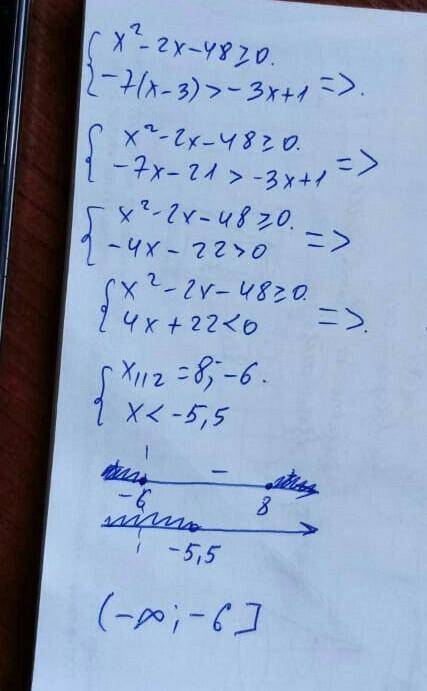 { x² - 2x - 48 ≥ 0.
{ -7(x - 3) > -3x + 1 =>.
{ x² - 2x - 48 ≥ 0.
{ -7x - 21 > -3x + 1 =>
{ x² - 2x - 48 ≥ 0.
{ -4x - 22 > 0 =>
{ x² - 2x - 48 ≥ 0.
{ 4x + 22 < 0 =>.
{ x₁,₂ = 8; -6.
{ x < -5,5
-
-6 8
-5,5
(-∞; -6]